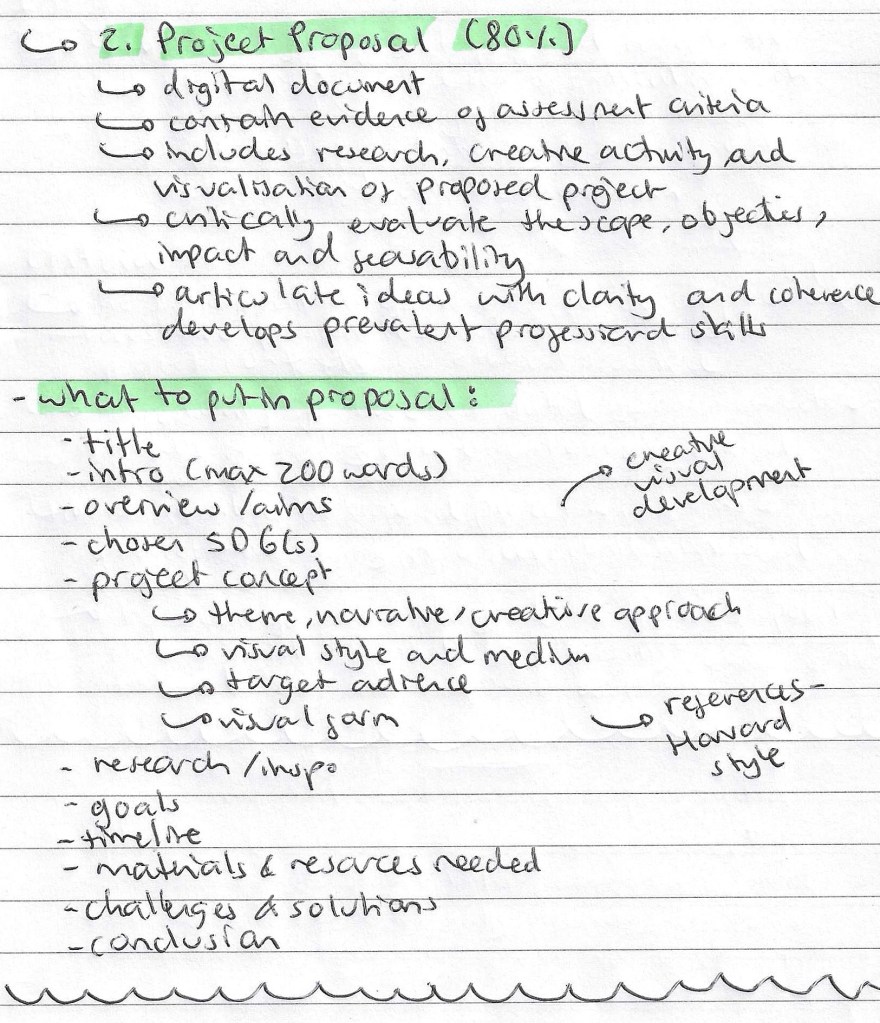 ↳ 2. Project Proposal (80%)
↳ digital document
↳ contain evidence of assessment criteria
↳ includes research, creative activity and
visualisation of proposed project
↳ critically evaluate the scope, objecties,
impact and feasability
↳ articulate ideas with clarity and coherence
develops prevalent professional skills
- what to put in proposal:
- title
- intro (max 200 words)
- overview / aims
→ creative
visual
development
- chosen SDG(s)
- project concept
↳ theme, narrative, creative approach
↳ visual style and medium
↳ target adience
↳ visual form
↳ references -
Harvard
style
- research / inspo
- goals
- timeline
- materials & resources needed
- challenges & solutions
- conclusion